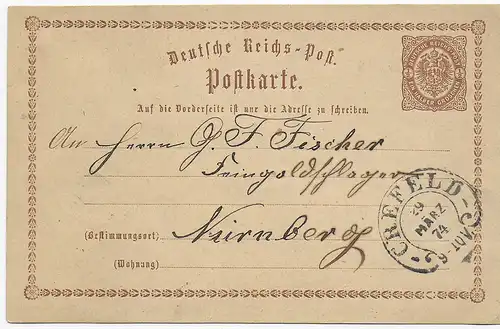 Deutsche Reichs-Post.
Postkarte.
Auf die Vorderseite ist nur die Adresse zu schreiben.
An Herrn G. F. Fischer
Feingoldschlager
(Bestimmungsort) Nürnberg
(Wohnung)
CREFELD-
29
MÄRZ
74